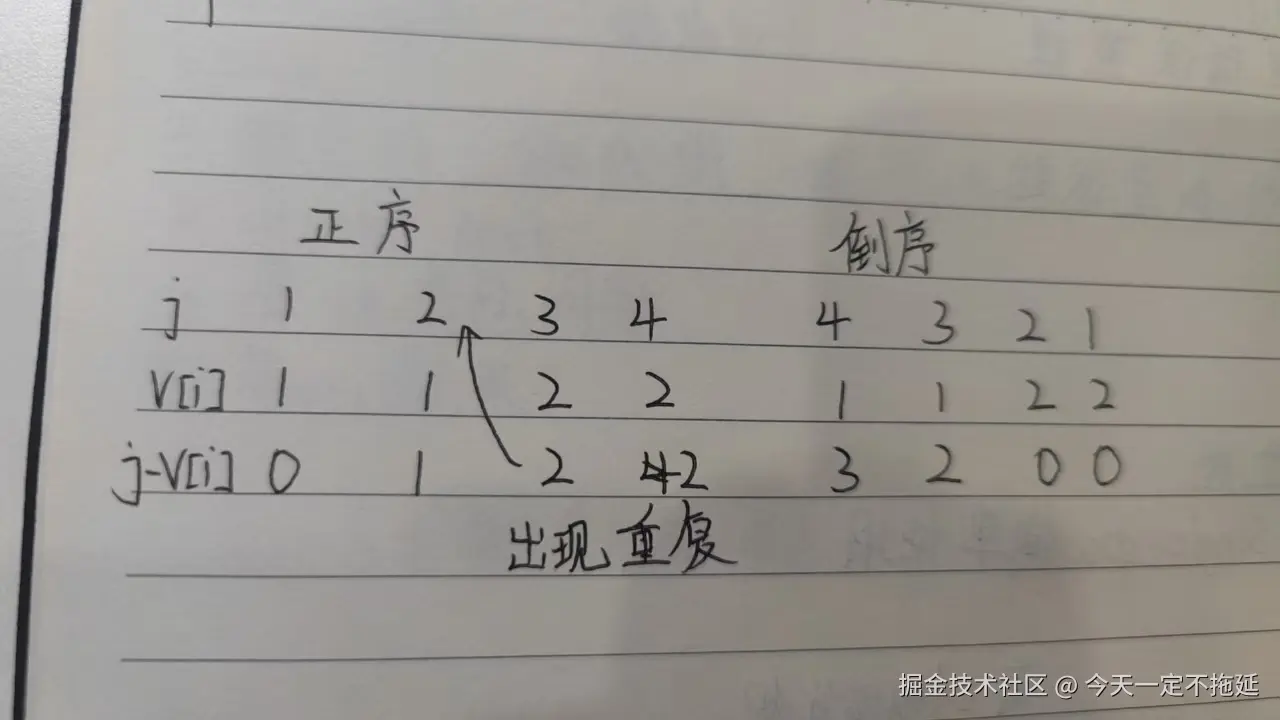 正序 倒序
j 1 2 3 4 4 3 2 1
V[i] 1 1 2 2 1 1 2 2
j-V[i] 0 1 2 2 3 2 0 0
出现重复
掘金技术社区 @ 今天一定不拖延